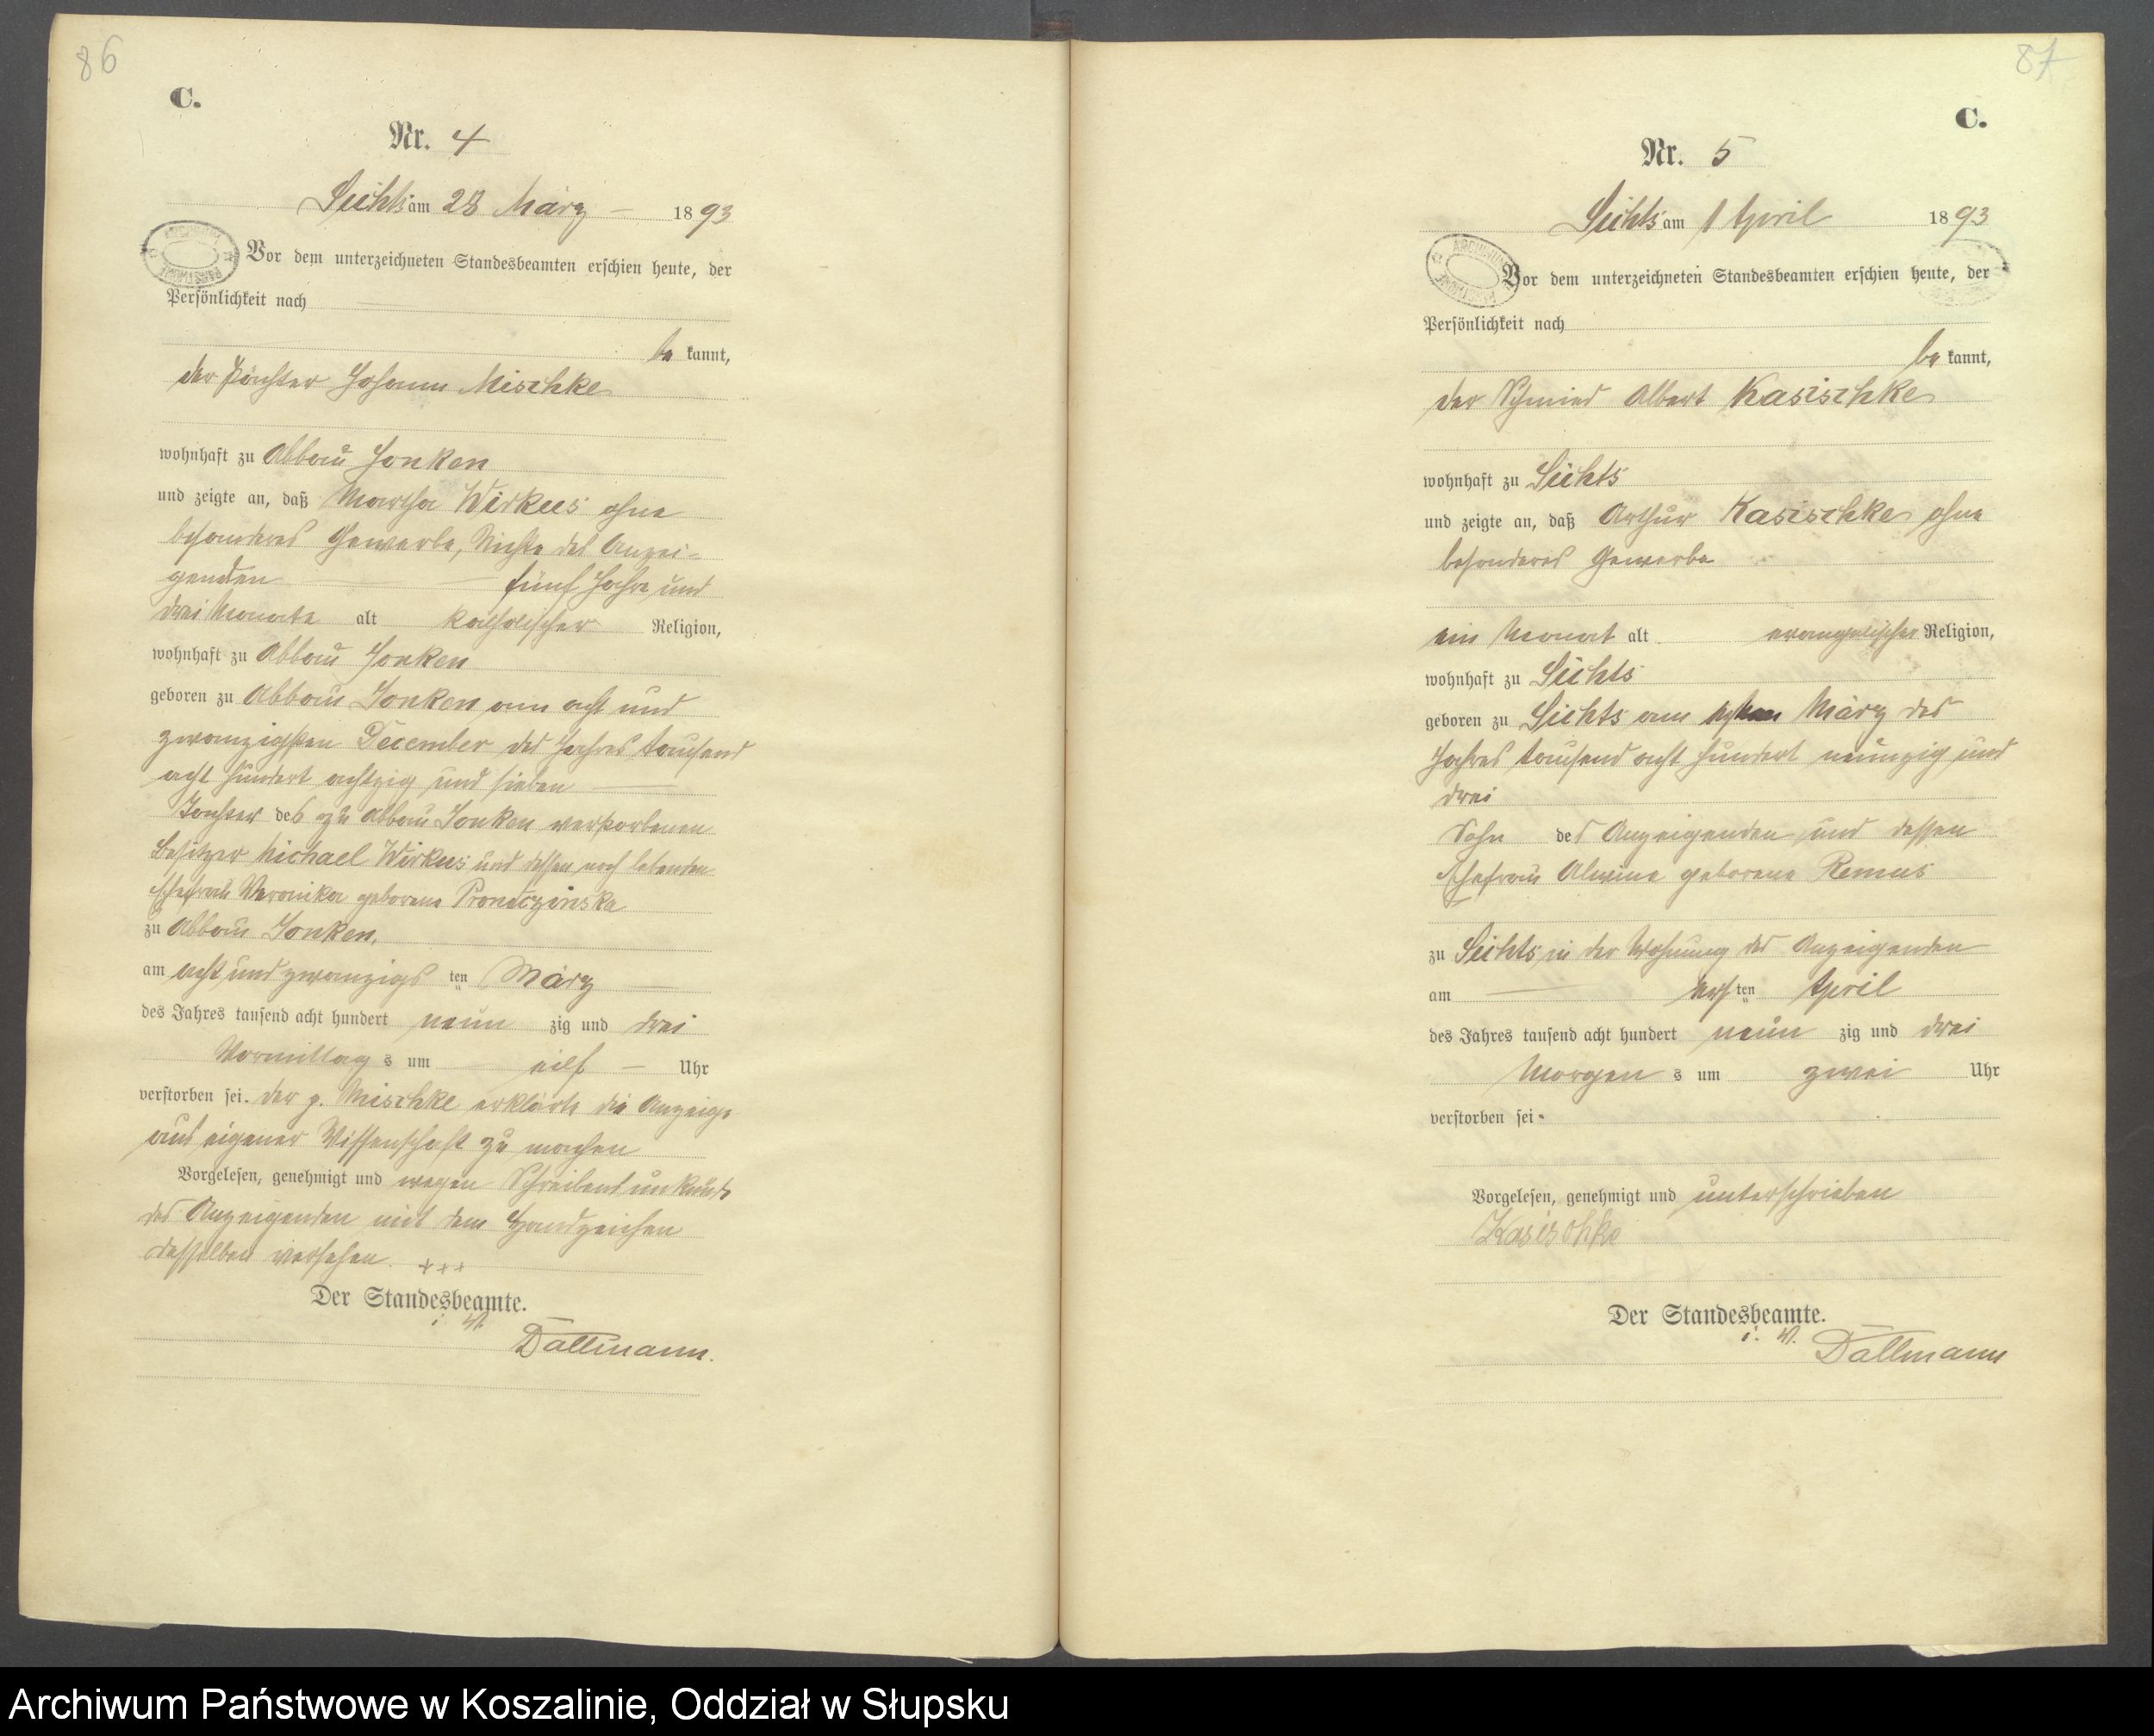 86
C.
Nr. 4
Sichts am 28 März 1893
Vor dem unterzeichneten Standesbeamten erschien heute, der
Persönlichkeit nach
be kannt,
der Pächter Johann Mischke
wohnhaft zu Abbau Jonken
und zeigte an, daß Martha Wirkus ohne
besonderes Gewerbe, Nichte des Anzei-
genden fünf Jahre und
drei Monate alt katholischer Religion,
wohnhaft zu Abbau Jonken
geboren zu Abbau Jonken am acht und
zwanzigsten December des Jahres tausend
acht hundert achtzig und sieben
Tochter des zu Abbau Jonken verstorbenen
Besitzer Michael Wirkus und dessen noch lebenden
Ehefrau Veronika geborene
zu Abbau Jonken,
am acht und zwanzigs ten März
des Jahres tausend acht hundert neun zig und drei
Vormittag s um eilf Uhr
verstorben sei. der p. Mischke erklärte die Anzeige
aus eigener Wissenschaft zu machen
Vorgelesen, genehmigt und wegen Schreibensunkunde
des Anzeigenden mit dem Handzeichen
desselben versehen. +++
Der Standesbeamte.
i. V.
Dallmann.
87
C.
Nr. 5
Sichts am 1 April 1893
Vor dem unterzeichneten Standesbeamten erschien heute, der
Persönlichkeit nach
be kannt,
der Schmied Albert Kasischke
wohnhaft zu Sichts
und zeigte an, daß Arthur Kasischke ohne
besonderes Gewerbe
ein Monat alt evangelischer Religion,
wohnhaft zu Sichts
geboren zu Sichts am März des
Jahres tausend acht hundert neunzig und
drei
Sohn des Anzeigenden und dessen
Ehefrau Alwine geborene Remus
zu Sichts in der Wohnung des Anzeigenden
am ersten April
des Jahres tausend acht hundert neun zig und drei
Morgen s um zwei Uhr
verstorben sei.
Vorgelesen, genehmigt und unterschrieben
Kasischke
Der Standesbeamte.
i. V.
Dallmann
Archiwum Państwowe w Koszalinie, Oddział w Słupsku